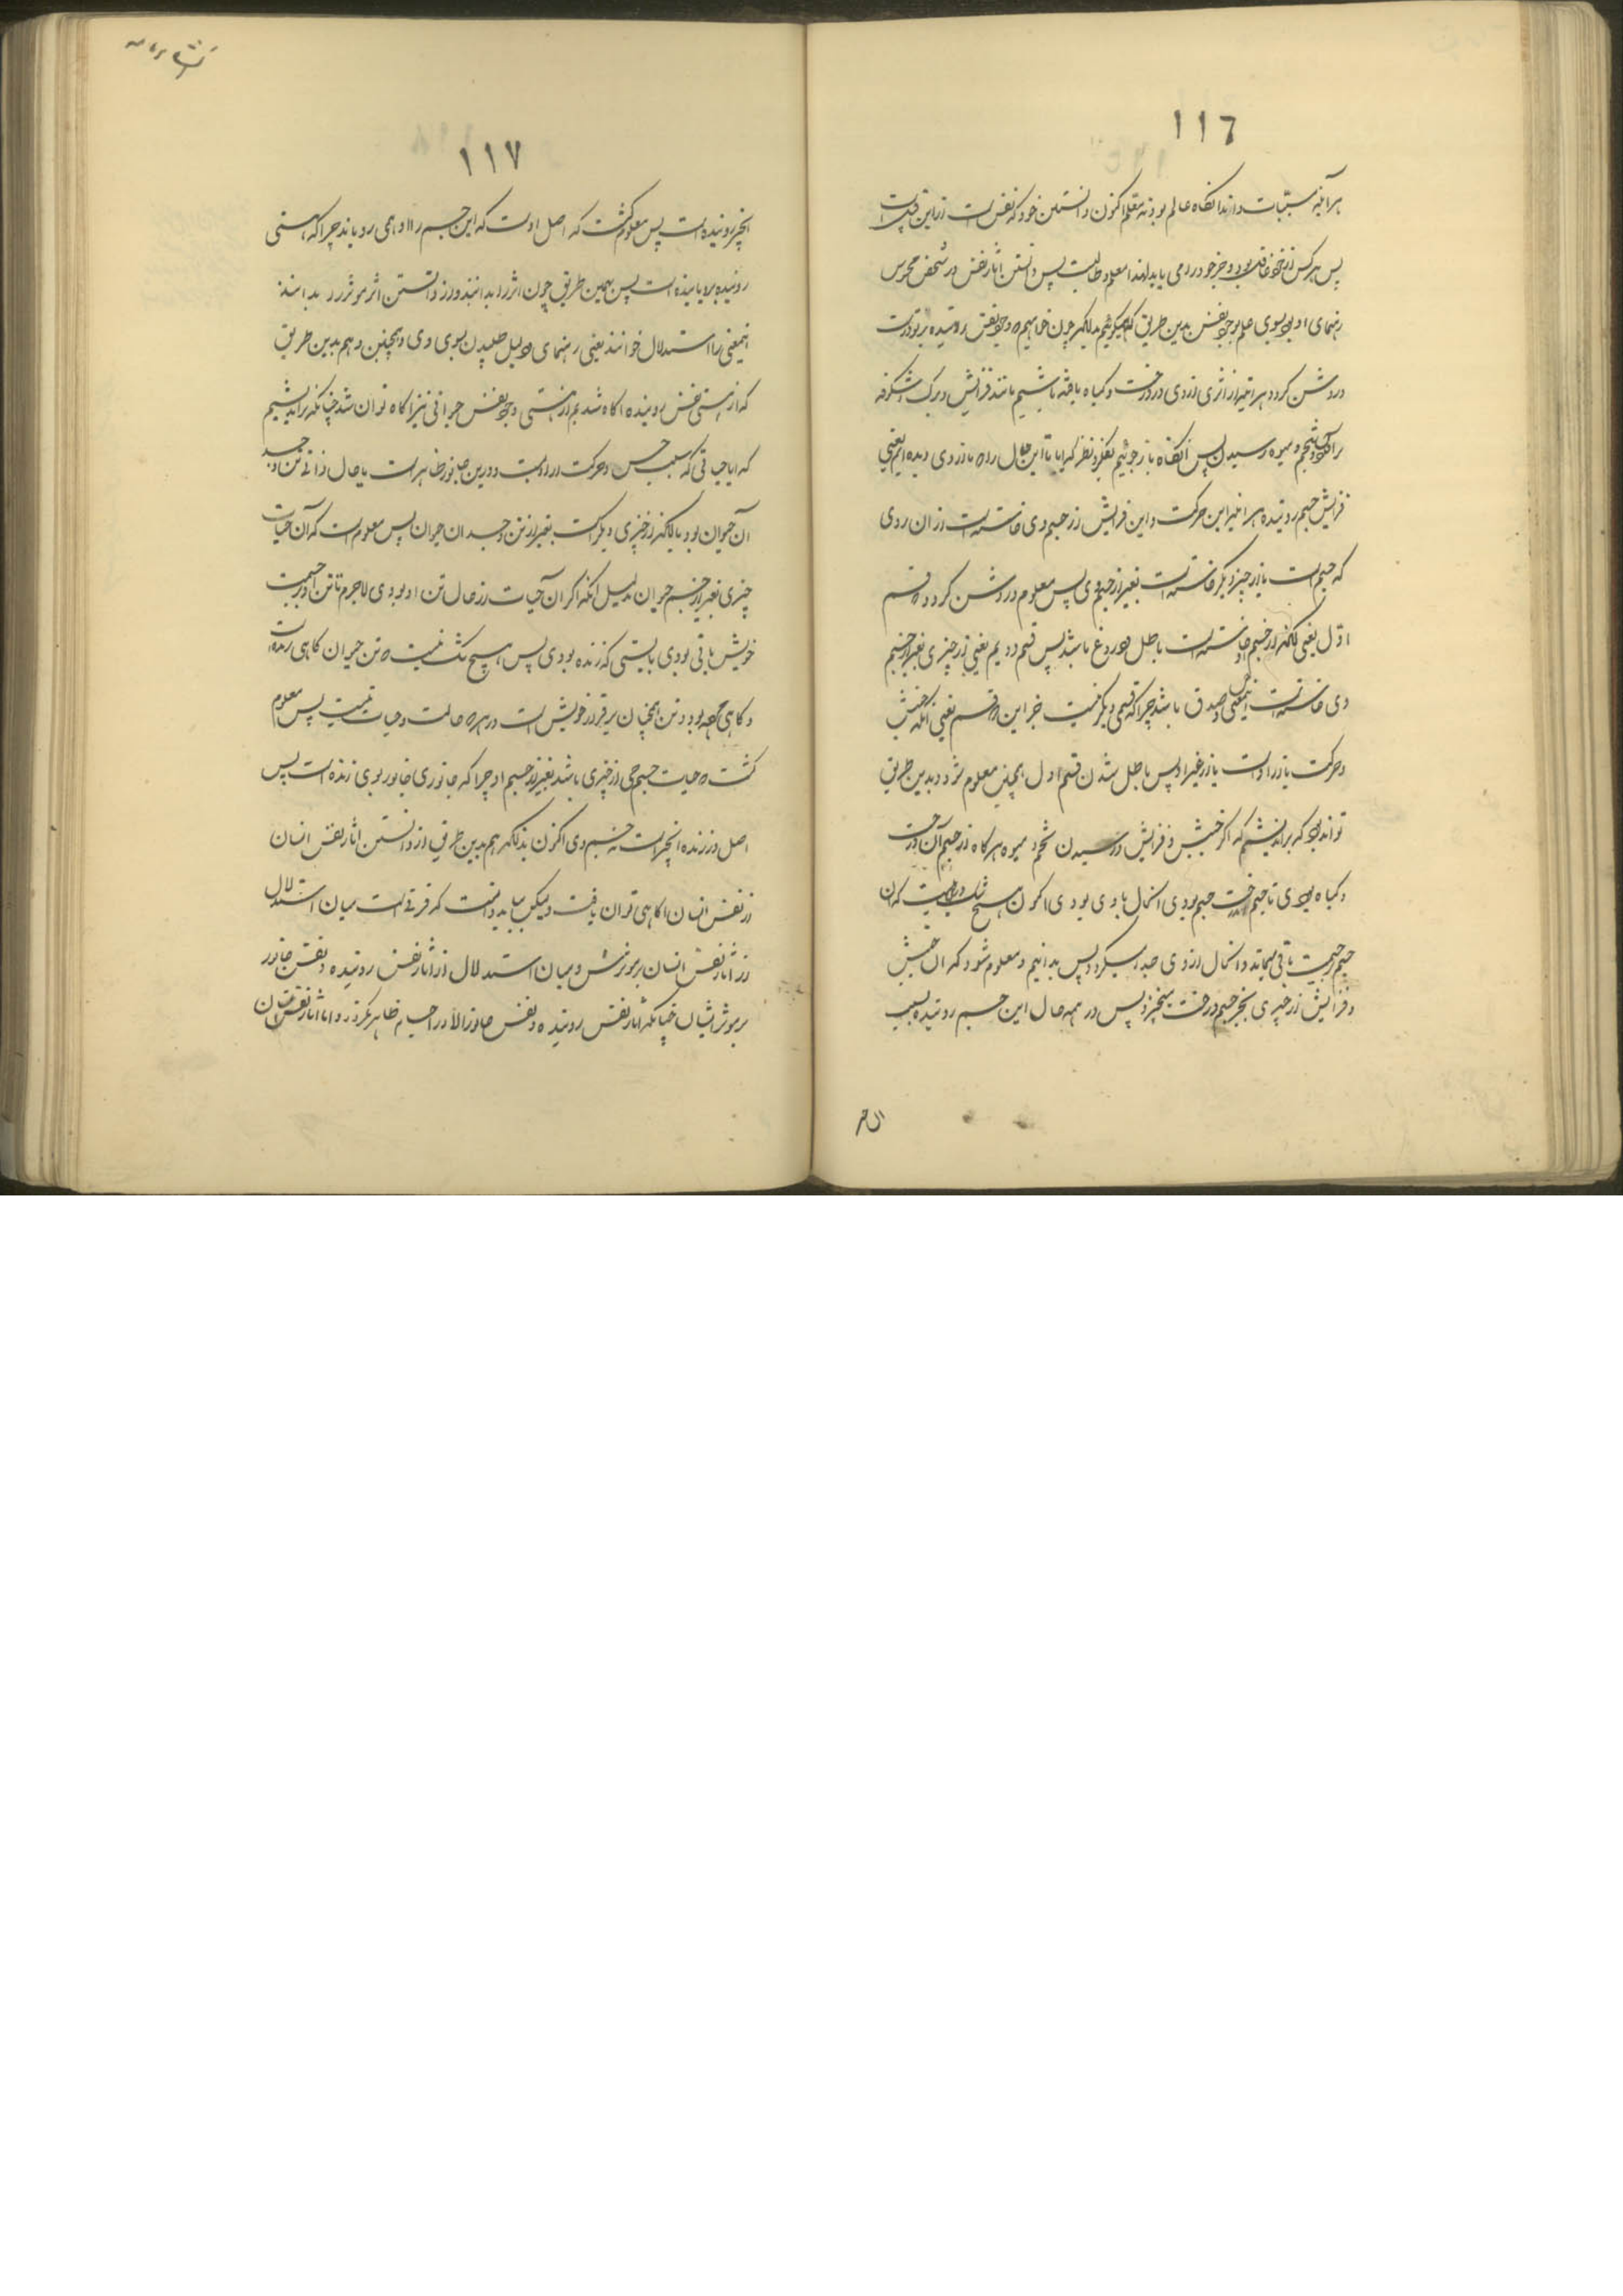 ١١٦
هرآینه مسببات داند انگاه عالم بود نه متعلم اکنون دانستن خود که نفس است ازین
پس هرکس از خود غافل بود و جز خود را می یابد لهذا معلم و طالب پس دانستن آثار نفس در شخص محسوس
رهنمای او بود بسوی علم بوجود نفس بدین طریق که میکوئیم بدانکه چون خواهیم که وجود نفس روینده بر تو درست
و روشن کردد هر آینه از اثری از وی در درخت و کیاه یافته باشیم مانند فزایش و برک و شکوفه
و تخم و میوه رسیدن پس انگاه باز جوئیم بفکر و نظر که ایا تا این حال را که ما از وی دیده ایم یعنی
فزایش جسم روینده هر آینه این حرکت و این فزایش از جسم وی خاسته است از ان روی
که جسم است یا از چیز دیگر خاسته است بغیر از جسم وی پس معلوم و روشن کردد که قسم
اوّل یعنی انکه از جسم او خاسته است باطل و دروغ باشد پس قسم دویم یعنی از چیزی بغیر از جسم
وی خاسته است اینمعنی صدق باشد چرا که قسمی دیگر نیست جز این دو قسم یعنی انکه جنبش
و حرکت یا از اوست یا از غیر او پس باطل شدن قسم اول همچنین معلوم شود و بدین طریق
تواند بود که براندیشیم که اکر جنبش و فزایش و رسیدن تخم و میوه هرکاه از جسم آن درخت
و کیاه بودی تا جسم درخت جسم بودی انحال با وی بودی اکنون هیچ شک نیست که ان
جسم بر جسمیت باقی میماند و انحال از وی جدا میکردد پس بدانیم و معلوم شود که ان جنبش
و فزایش از چیزی بجز جسم درخت میخیزد پس در همه حال این جسم روینده بسبب
ان چیز
١١٧
انچیز روینده است پس معلوم کشت که اصل اوست که این جسم را او همی رویاند چرا که هستی
روینده برویاینده است پس بهمین طریق چون اثر را بدانند و از دانستن اثر موثر را بدانند
اینمعنی را استدلال خوانند یعنی رهنمای و دلیل طلبیدن بسوی وی و همچنین و هم بدین طریق
که از هستی نفس روینده اکاه شدیم از هستی وجود نفس حیوانی نیز اکاه توان شد چنانکه براندیشیم
که ایا حیاتی که سبب حس و حرکت ارادیست و درین جانور ظاهر است یا حال ذاتی تن و جسد
آن حیوان بود یا انکه از چیزی دیگر است بغیر از تن و جسد ان حیوان پس معلوم است که آن حیات
چیزی بغیر از جسم حیوان بدلیل انکه اکر آن حیات از حال تن او بودی لاجرم تا تن او بر جسمیت
خویش باقی بودی بایستی که زنده بودی پس هیچ شک نیست که تن حیوان کاهی زنده است
و کاهی مرده بود و تن همچنان برقرار خویش است در هر دو حالت و حیات نیست پس معلوم
کشت که حیات جسم حی از چیزی باشد بغیر از جسم او چرا که جانوری جانور بوی زنده است پس
اصل در زنده انچیز است نه جسم وی اکنون بدانکه هم بدین طریق از دانستن آثار نفس انسان
از نفس انسان اکاهی توان یافت ولیکن بباید دانست که فرقی است میان استدلال
از آثار نفس انسان بر موثرش و میان استدلال از آثار نفس روینده و نفس جانور
بر موثر ایشان چنانکه آثار نفس روینده و نفس جانور الا در اجسام ظاهر نکردد و اما آثار نفس انسان